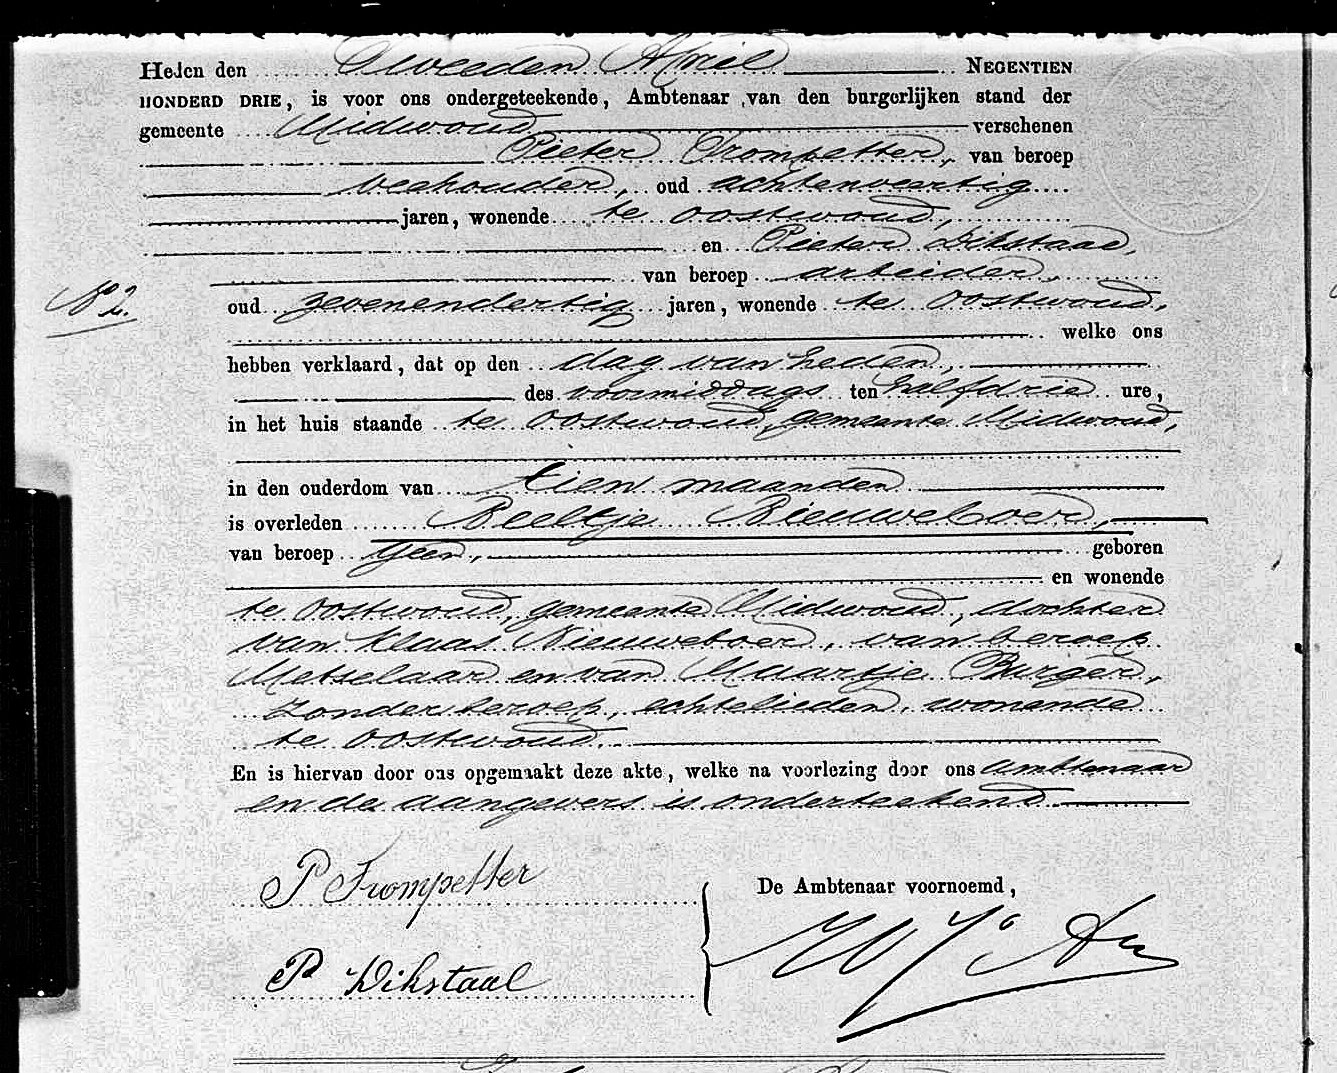 Heden den Tweeden April NEGENTIEN
HONDERD DRIE, is voor ons ondergeteekende, Ambtenaar van den burgerlijken stand der
gemeente Midwoud verschenen
Pieter Trompetter, van beroep
veehouder, oud achtenveertig
jaren, wonende te Oostwoud,
en Pieter Dikstaal,
van beroep arbeider,
No 2.
oud zevenendertig jaren, wonende te Oostwoud,
welke ons
hebben verklaard, dat op den dag van heden,
des voormiddags ten halfdrie ure,
in het huis staande te Oostwoud, gemeente Midwoud,
in den ouderdom van tien maanden
is overleden Neeltje Nieuweboer,
van beroep geen, geboren
en wonende
te Oostwoud, gemeente Midwoud, dochter
van Klaas Nieuweboer, van beroep
Metselaar en van Maartje Burger,
zonder beroep, echtelieden, wonende
te Oostwoud.
En is hiervan door ons opgemaakt deze akte, welke na voorlezing door ons ambtenaar
en de aangevers is onderteekend
P Trompetter
De Ambtenaar voornoemd,
P Dikstaal